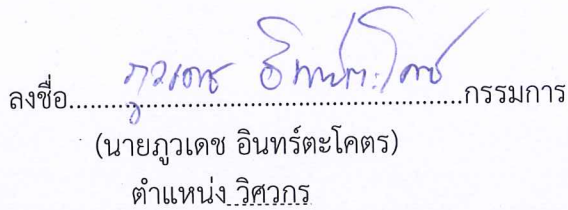 ภูวเดช อินทร์ตะโคตร
ลงชื่อ............................................................กรรมการ
(นายภูวเดช อินทร์ตะโคตร)
ตำแหน่ง วิศวกร